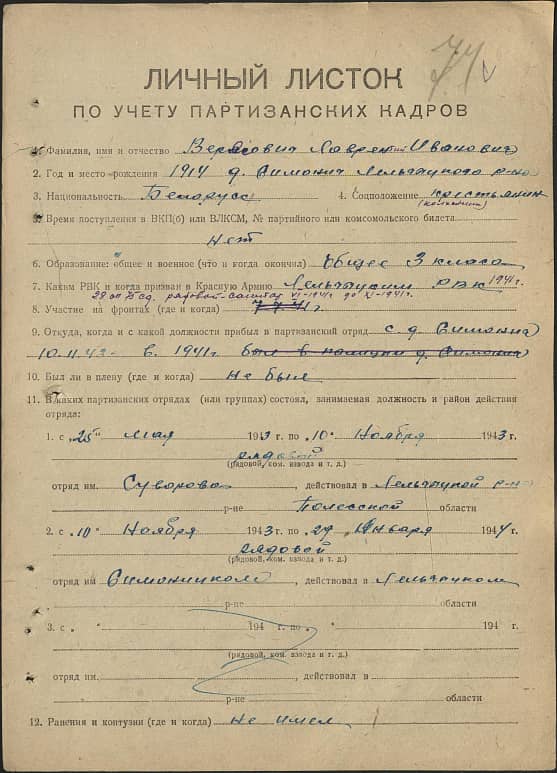 74
ЛИЧНЫЙ ЛИСТОК
ПО УЧЕТУ ПАРТИЗАНСКИХ КАДРОВ
1. Фамилия, имя и отчество Верасович Лаврентий Иванович
2. Год и место рождения 1914 д. Симонич Лельчицкого р-на
3. Национальность Белорусс 4. Соцположение крестьянин
(колхозник)
5. Время поступления в ВКП(б) или ВЛКСМ, № партийного или комсомольского билета
нет
6. Образование: общее и военное (что и когда окончил) Общее 3 класса
7. Каким РВК и когда призван в Красную Армию Лельчицким РВК 1941 г.
28 ап 75 сд. рядовой-солдат VI-1941 до XI-1941 г.
8. Участие на фронтах (где и когда)
9. Откуда, когда и с какой должности прибыл в партизанский отряд с д. Симонич
10.11.43 в 1941 был в полиции д. Симонич
10. Был ли в плену (где и когда) Не был
11. В каких партизанских отрядах (или группах) состоял, занимаемая должность и район действия
отряда:
1. с „25" мая 1943 г. по „10" Ноября 1943 г.
рядовой
(рядовой, ком. взвода и т. д.)
отряд им. Суворова, действовал в Лельчицкой р-н
р-не Полесской области
2. с „10" Ноября 1943 г. по „29" Января 1944 г.
рядовой
(рядовой, ком. взвода и т. д.)
отряд им Симоничском, действовал в Лельчицком
р-не области
3. с „ " 194 г. по „ " 194 г.
(рядовой, ком. взвода и т. д.)
отряд им. , действовал в
р-не области
12. Ранения и контузии (где и когда) не имел